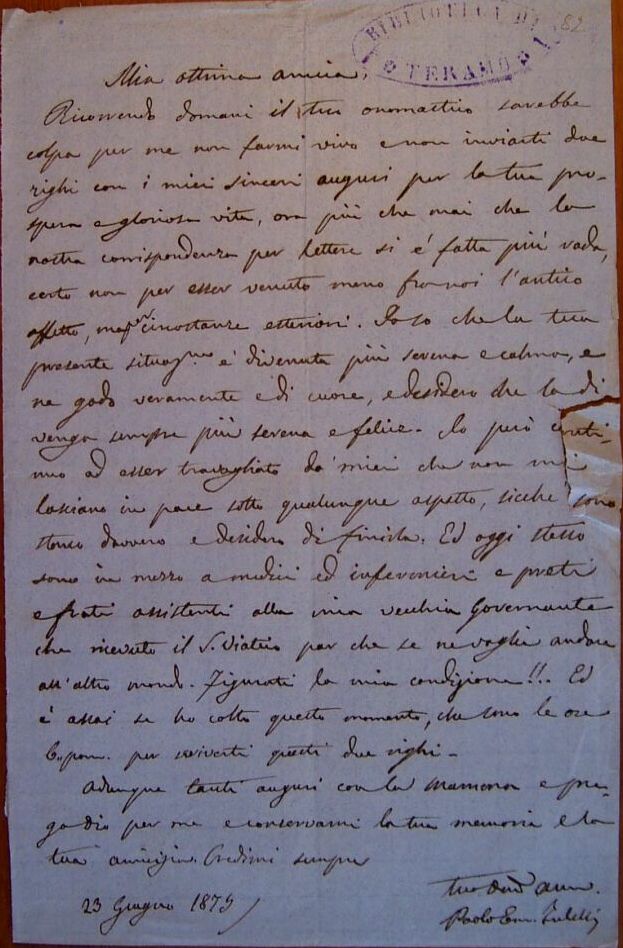 BIBLIOTECA DI
TERAMO
82
Mia ottima amica,
Ricorrendo domani il tuo onomastico sarebbe
colpa per me non farmi vivo e non inviarti due
righi con i miei sinceri auguri per la tua pro-
spera e gloriosa vita, ora più che mai che la
nostra corrispondenza per lettere si è fatta più rada,
certo non per esser venuto meno fra noi l'antico
affetto, ma per circostanze esteriori. Io so che la tua
presente situaz.ne è divenuta più serena e calma, e
ne godo veramente e di cuore, e desidero che la di
venga sempre più serena e felice. Io però conti-
nuo ad esser travagliato da' miei che non mi
lasciano in pace sotto qualunque aspetto, sicchè sono
stanco davvero e desidero di finirla. Ed oggi stesso
sono in mezzo a medici ed infermieri e preti
e frati assistenti alla mia vecchia Governante
che ricevuto il S. Viatico par che se ne voglia andare
all'altro mondo. Figurati la mia condizione!!. Ed
è assai se ho colto questo momento, che sono le ore
6 pom. per scriverti questi due righi -
Adunque tanti auguri con la Mamma e pre-
ga dio per me e conservami la tua memoria e la
tua amicizia. Credimi sempre
23 Giugno 1879
tuo amo.
Paolo Em.